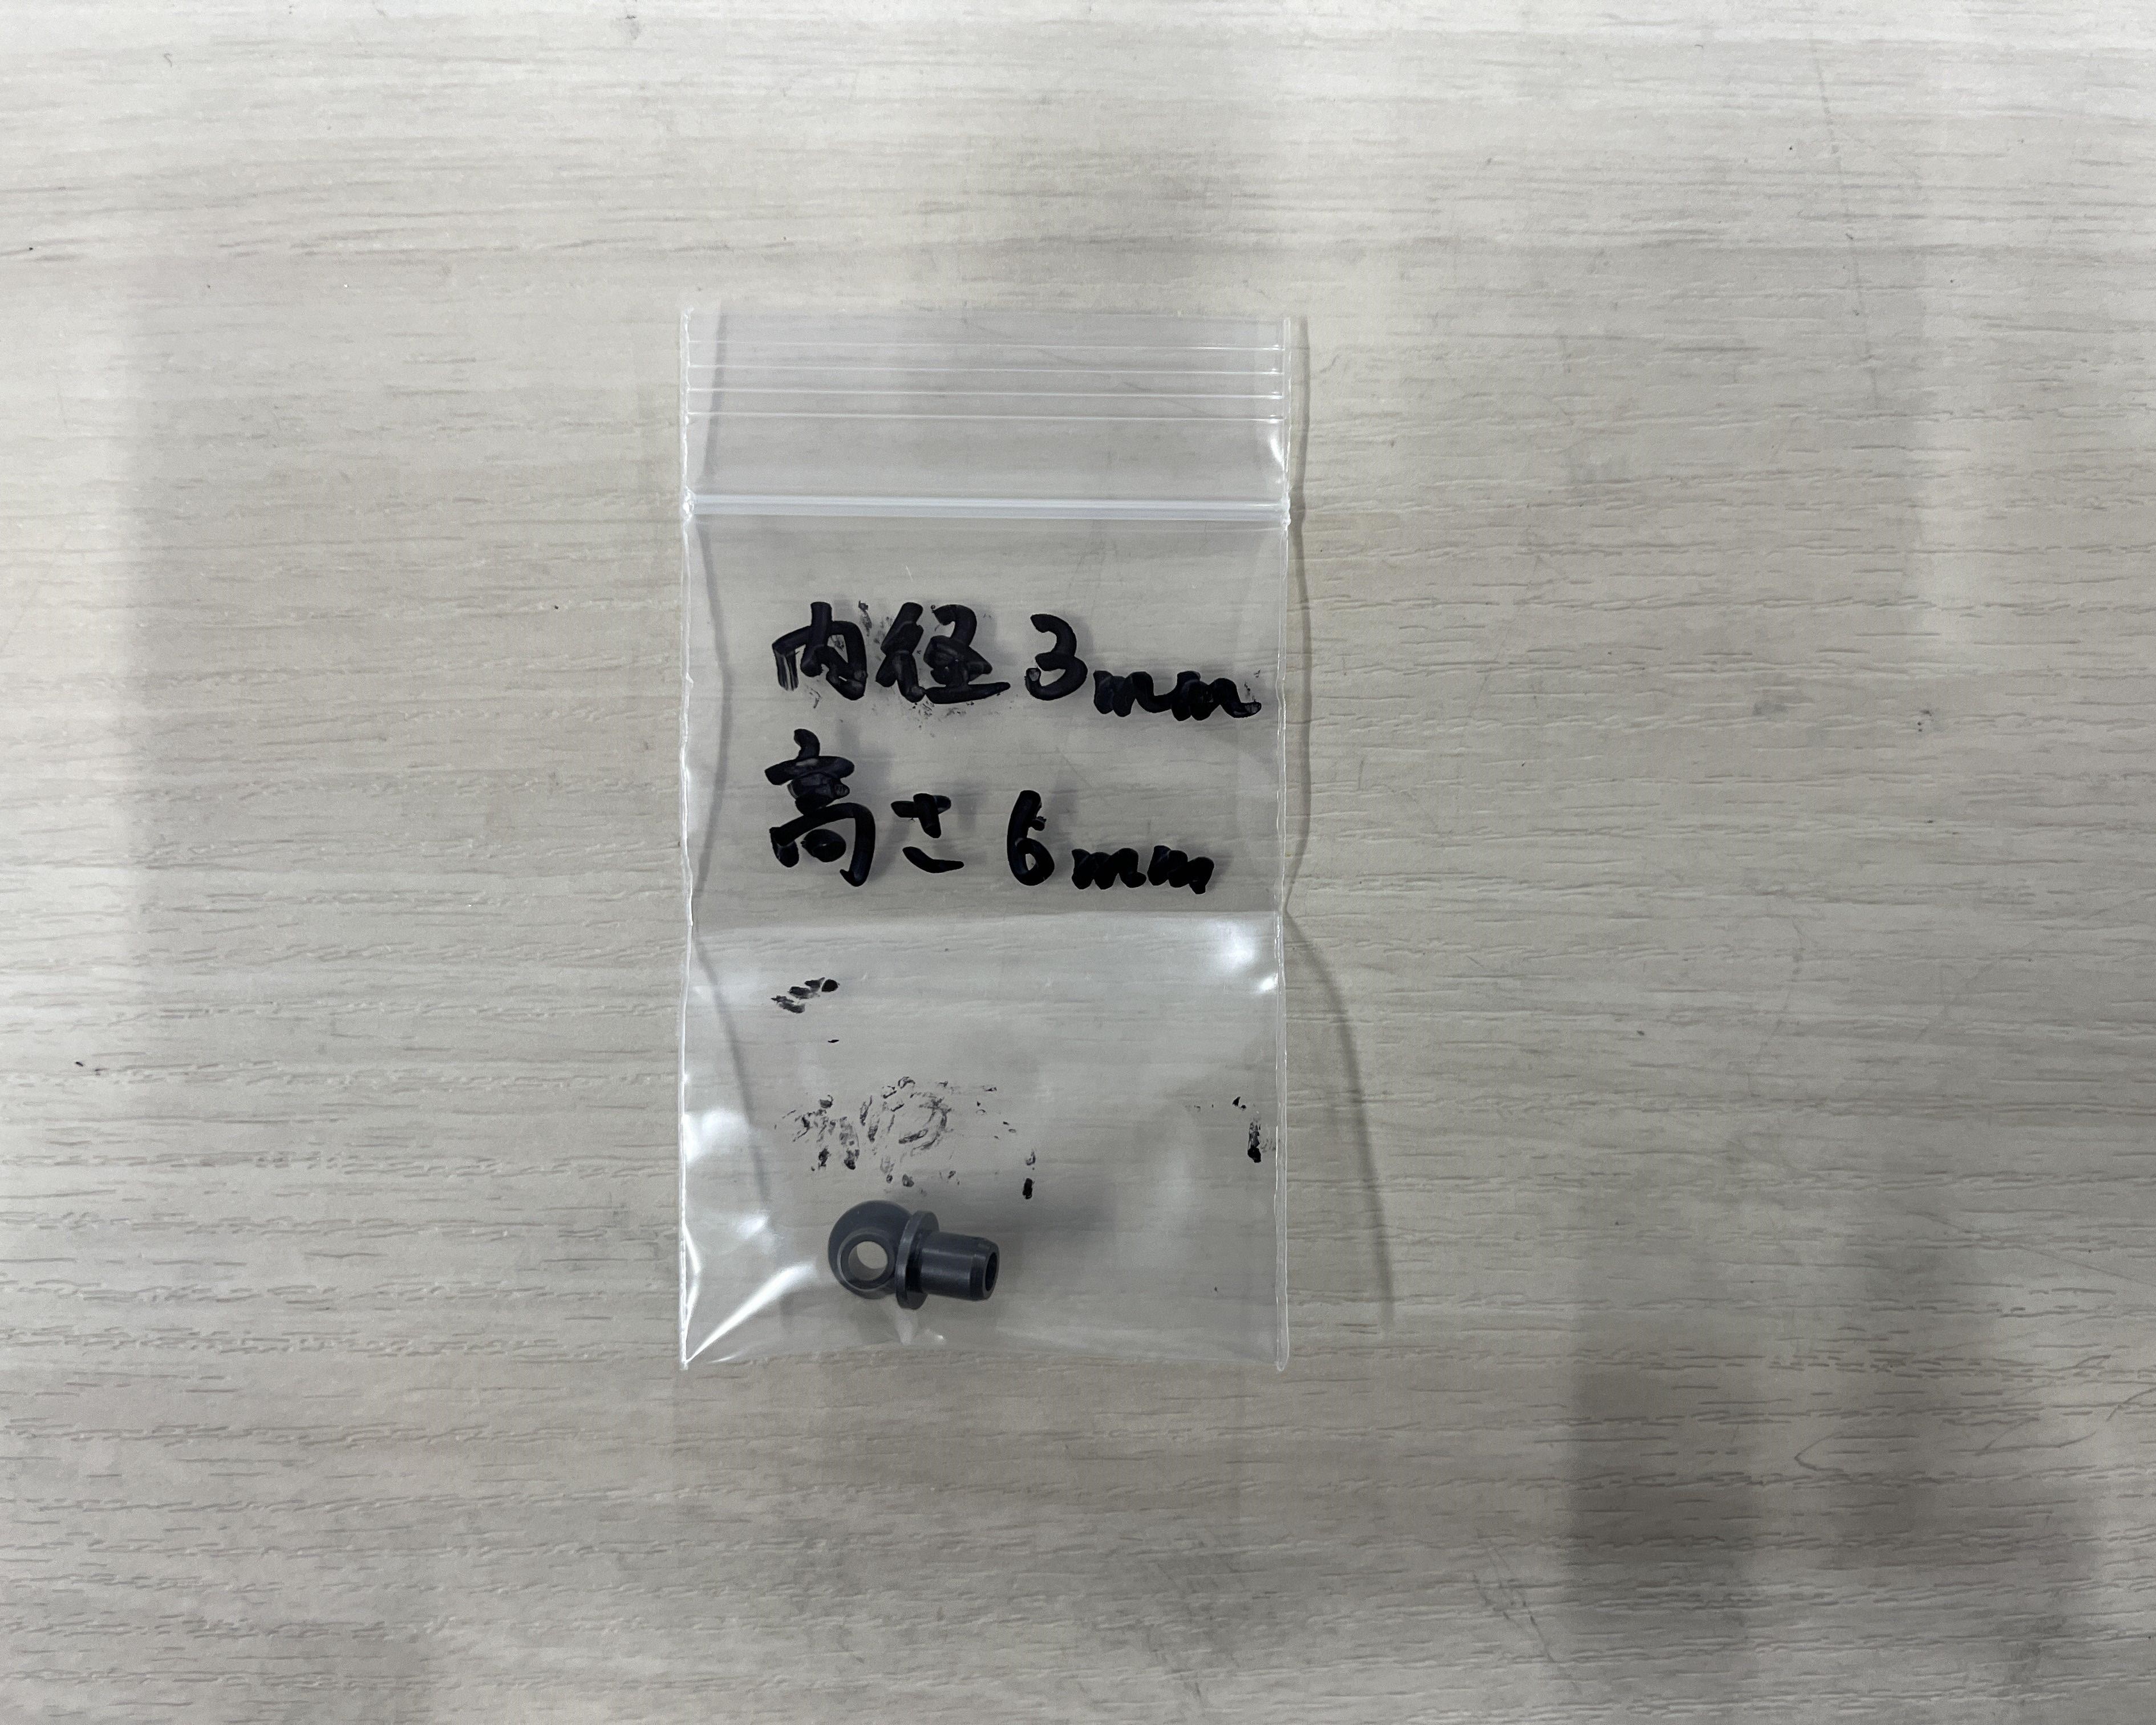 内径3mm
高さ6mm